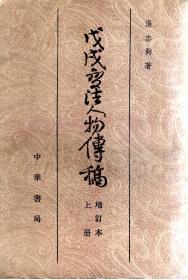 湯志鈞著
戊戌變法人物傳稿
增訂本
上册
中華書局